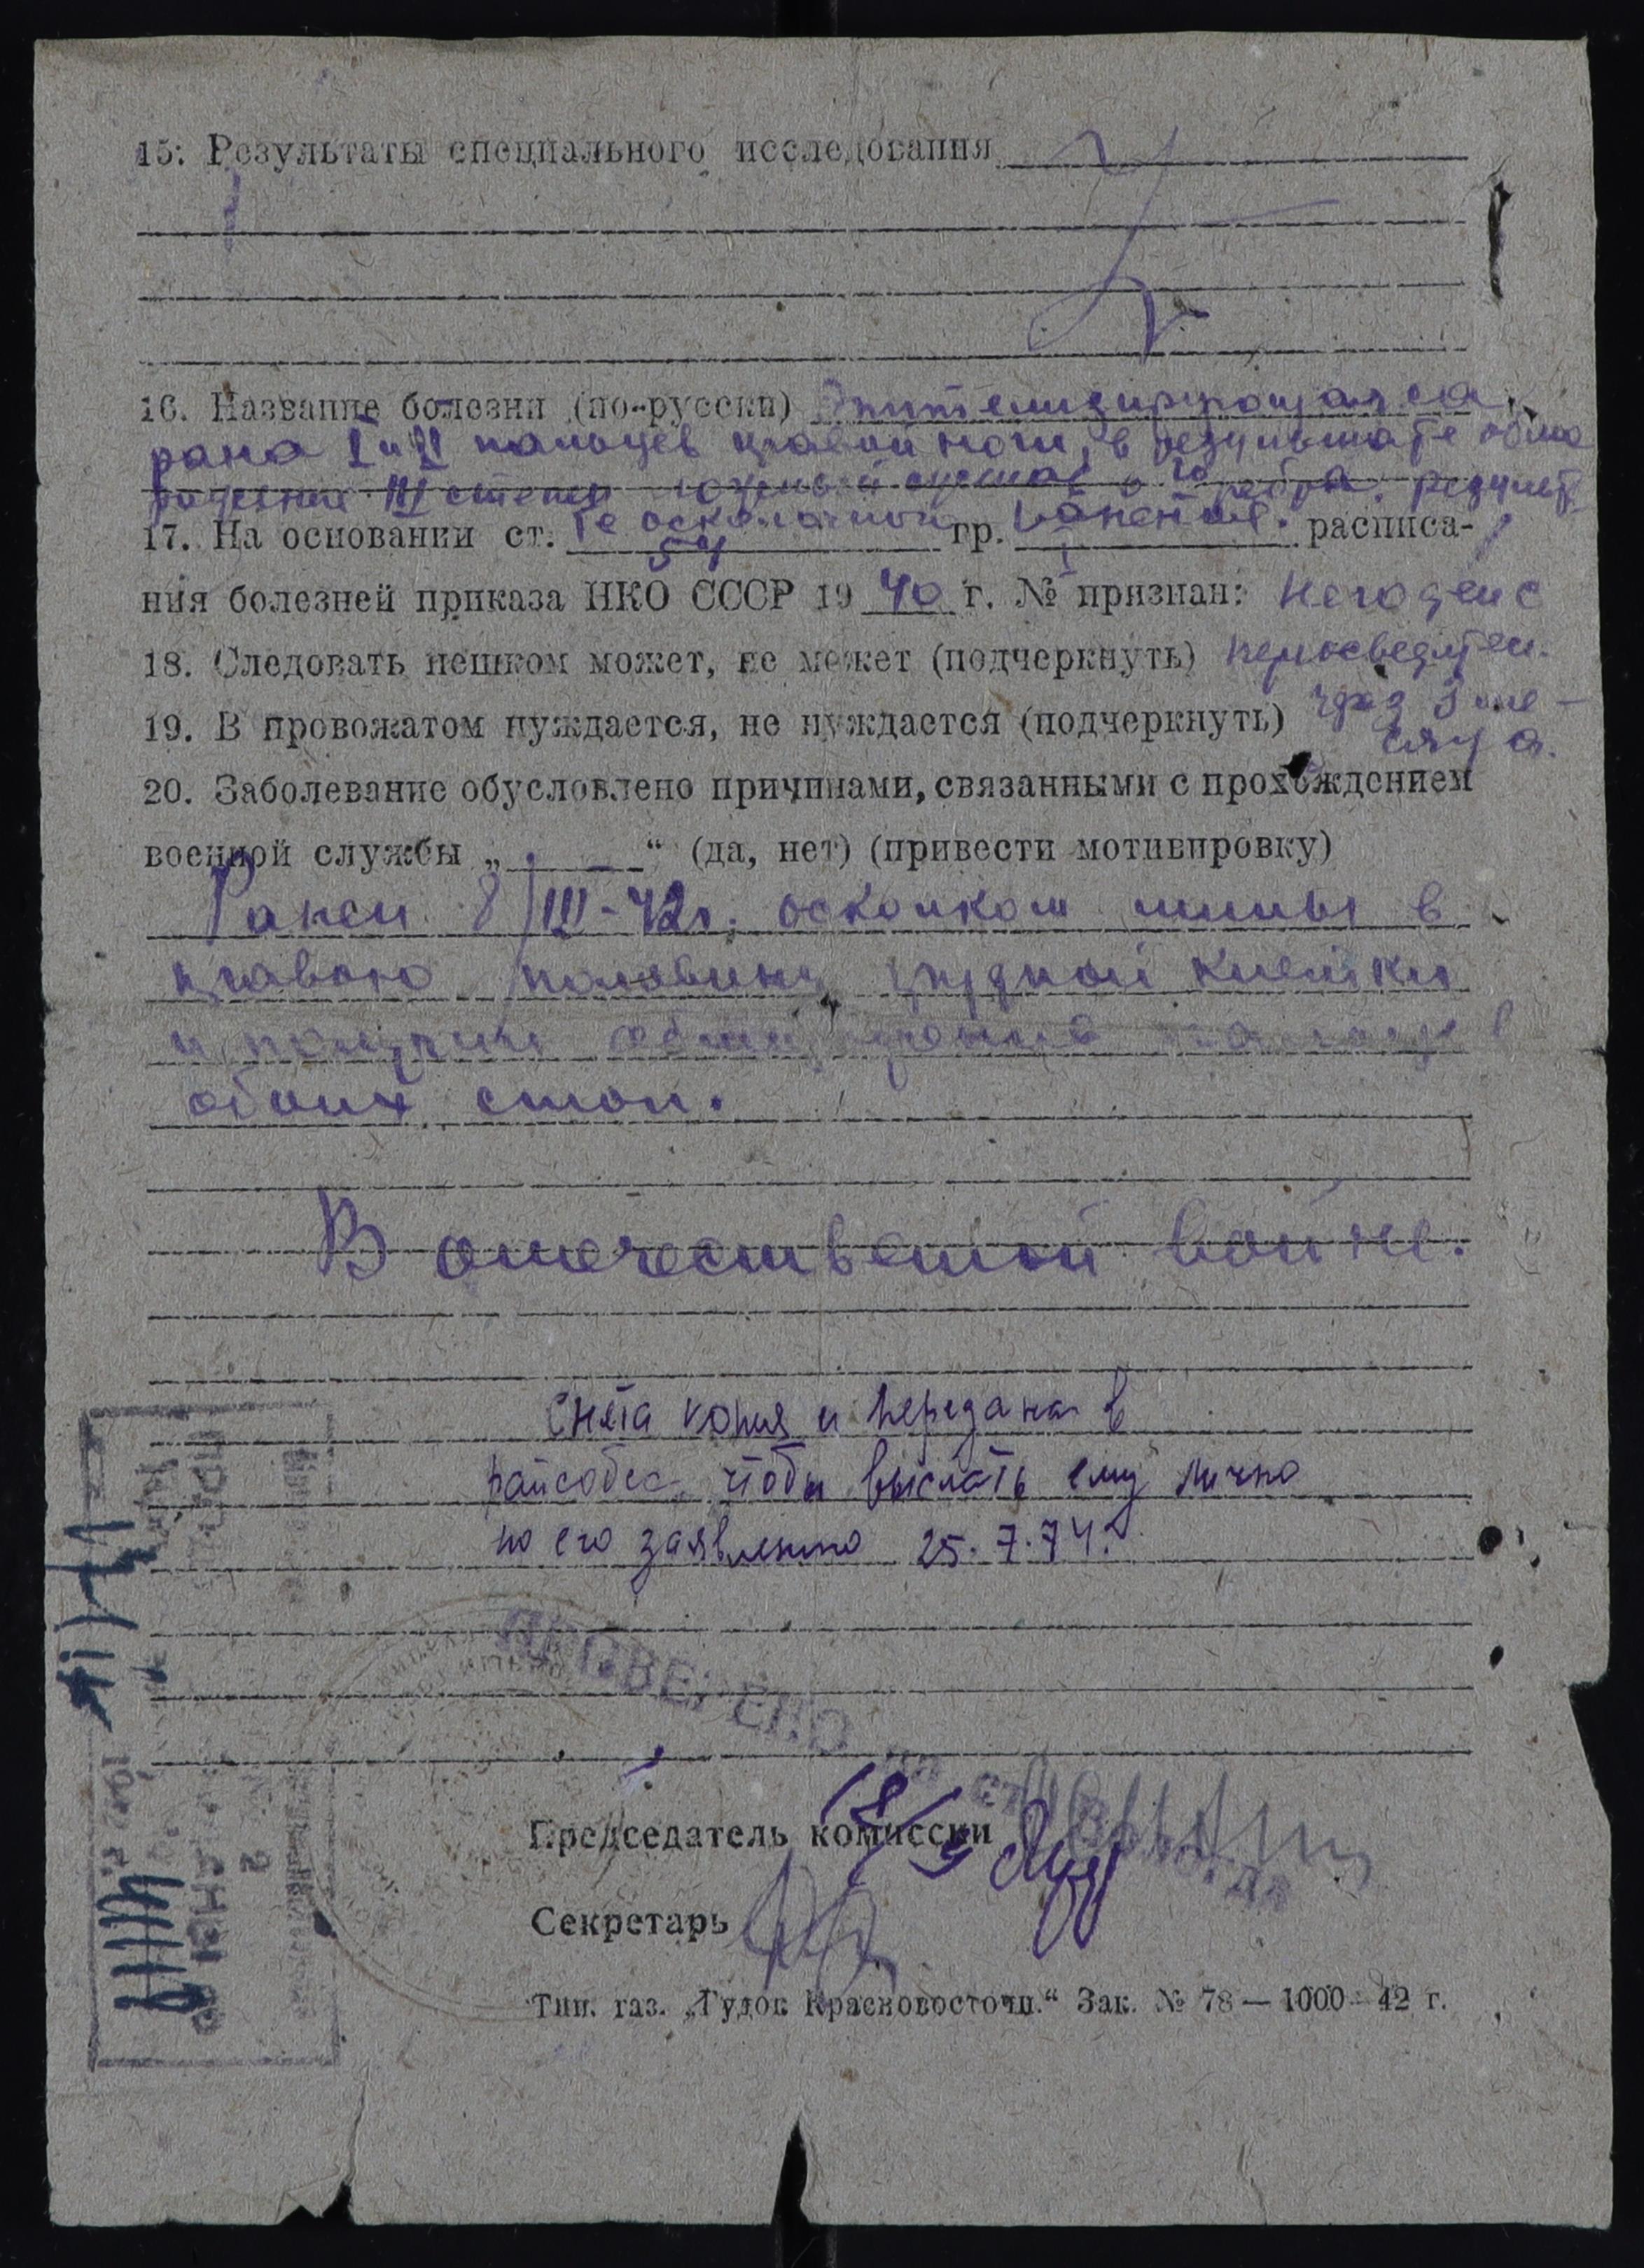 15. Результаты специального исследования
16. Название болезни (по-русски) Эпителизирующаяся
рана I и II пальцев правой ноги, в результате обмо
рожения III степени 10 ребра. результ
17. На основании ст. те осколочного гр. ранения. расписа-
54 I
ния болезней приказа НКО СССР 1940 г. № признан: негоден с
18. Следовать пешком может, не может (подчеркнуть) переосвидетел.
19. В провожатом нуждается, не нуждается (подчеркнуть) через 3 ме-
сяца.
20. Заболевание обусловлено причинами, связанными с прохождением
военной службы „ “ (да, нет) (привести мотивировку)
Ранен 8/III-42г. осколком мины в
правою половину грудной клетки
и получил пальцев
обоих стоп.
В отечественой войне.
Снята копия и передана в
райсобес, чтобы выслать ему лично
по его заявлению 25.7.74г.
ПРОВЕРЕНО
Председатель комиссии
Секретарь
Тип. газ. „Гудок Красновосточн.“ Зак. № 78 — 1000 — 42 г.